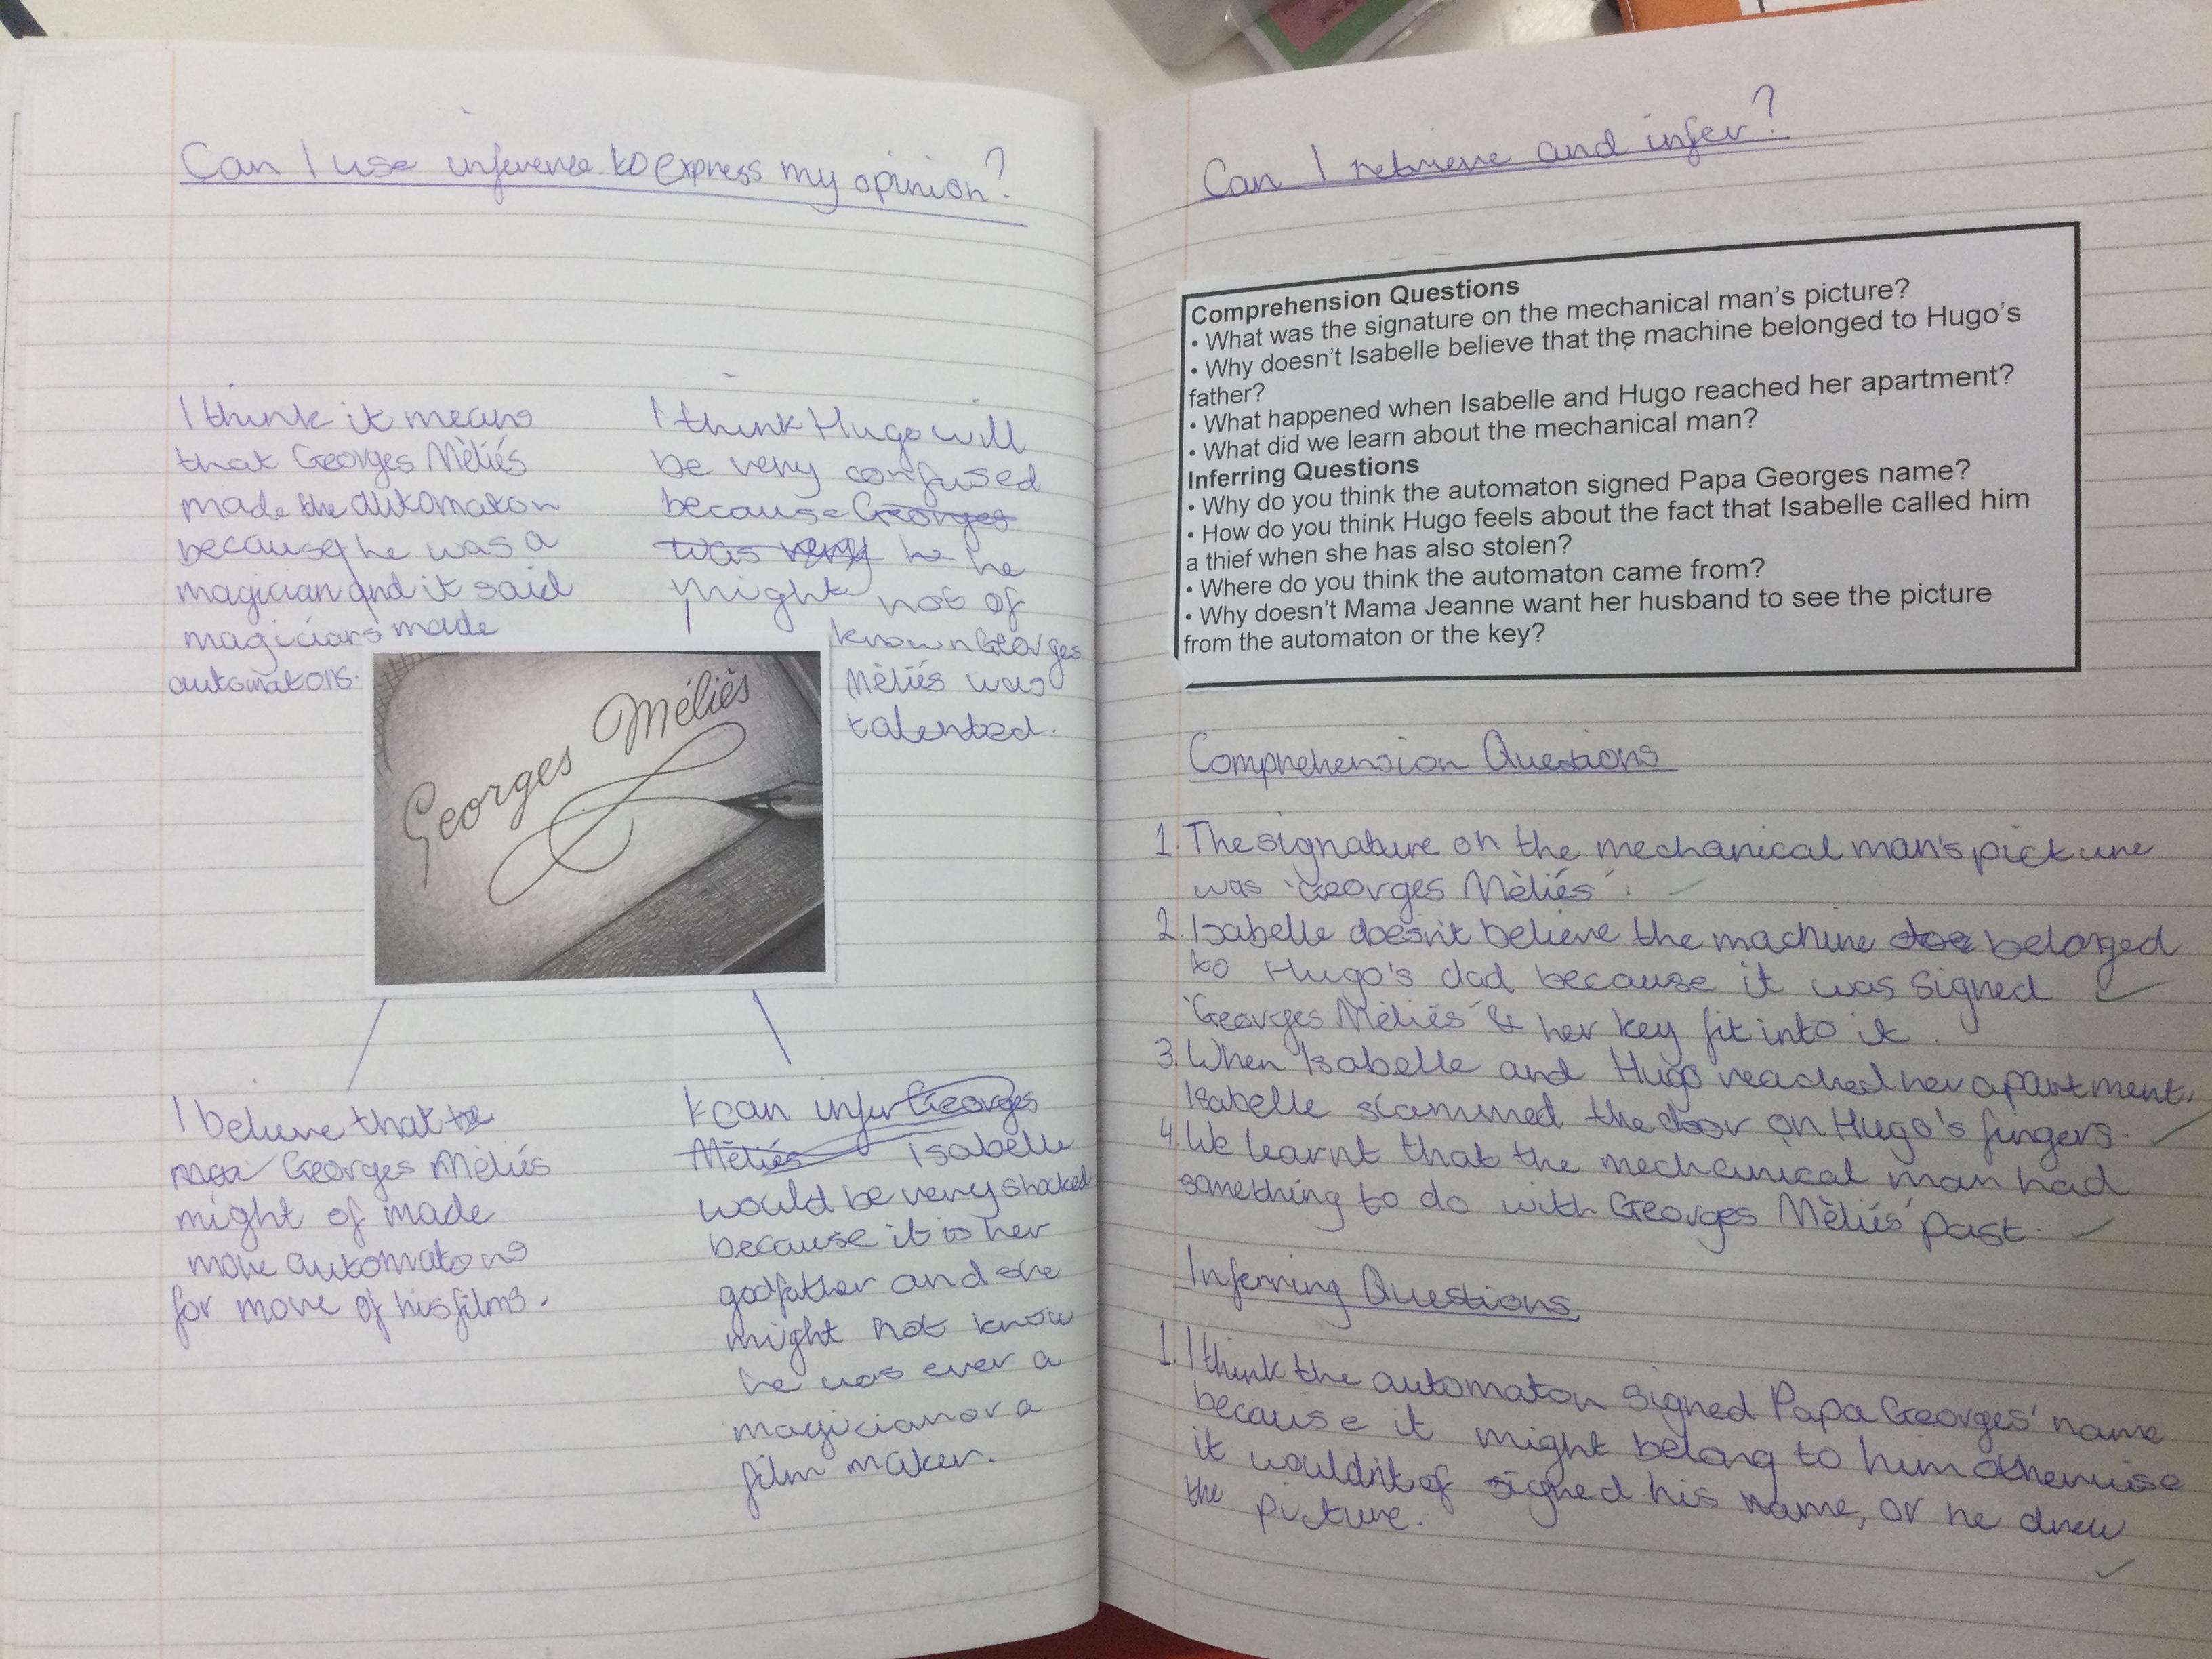 Can I use inference to express my opinion?
I think it means
that Georges Mèliés
made the automaton
because he was a
magician and it said
magicians made
automatons.
I think Hugo will
be very confused
because Georges
was very he he
might not of
known Georges
Mèliés was
talented.
Georges Méliès
I believe that
Georges Mèliés
might of made
more automatons
for more of his films.
I can infer Georges
Mèliés Isabelle
would be very shocked
because it is her
godfather and she
might not know
he was ever a
magician or a
film maker.
Can I retrieve and infer?
Comprehension Questions
• What was the signature on the mechanical man's picture?
• Why doesn't Isabelle believe that the machine belonged to Hugo's
father?
• What happened when Isabelle and Hugo reached her apartment?
• What did we learn about the mechanical man?
Inferring Questions
• Why do you think the automaton signed Papa Georges name?
• How do you think Hugo feels about the fact that Isabelle called him
a thief when she has also stolen?
• Where do you think the automaton came from?
• Why doesn't Mama Jeanne want her husband to see the picture
from the automaton or the key?
Comprehension Questions
1. The signature on the mechanical man's picture
was 'Georges Mèliés'.
2. Isabelle doesn't believe the machine belonged
to Hugo's dad because it was signed
'Georges Mèliés' & her key fit into it.
3. When Isabelle and Hugo reached her apartment,
Isabelle slammed the door on Hugo's fingers.
4. We learnt that the mechanical man had
something to do with Georges Mèliés' past.
Inferring Questions
1. I think the automaton signed Papa Georges' name
because it might belong to him otherwise
it wouldn't of signed his name, or he drew
the picture.